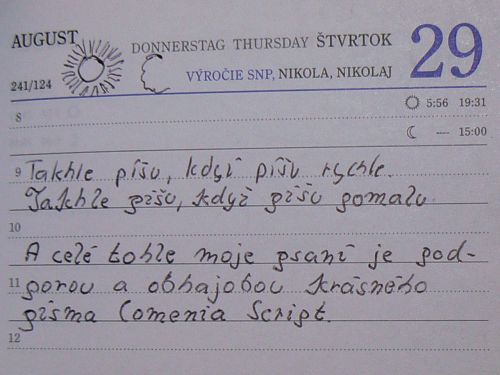 AUGUST DONNERSTAG THURSDAY ŠTVRTOK 29
241/124 VÝROČIE SNP, NIKOLA, NIKOLAJ
5:56 19:31
8
— 15:00
9 Takhle píšu, když píšu rychle.
Takhle píšu, když píšu pomalu.
10
A celé tohle moje psaní je pod-
11 porou a obhajobou krásného
písma Comenia Script.
12